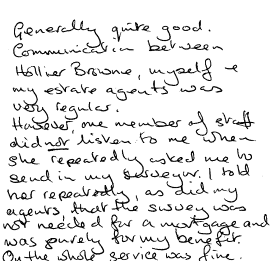 Generally quite good.
Communication between
Hollier Browne, myself &
my estate agents was
very regular.
However, one member of staff
did not listen to me when
she repeatedly asked me to
send in my surveyor. I told
her repeatedly, as did my
agents, that the survey was
not needed for a mortgage and
was purely for my benefit.
On the whole service was fine.